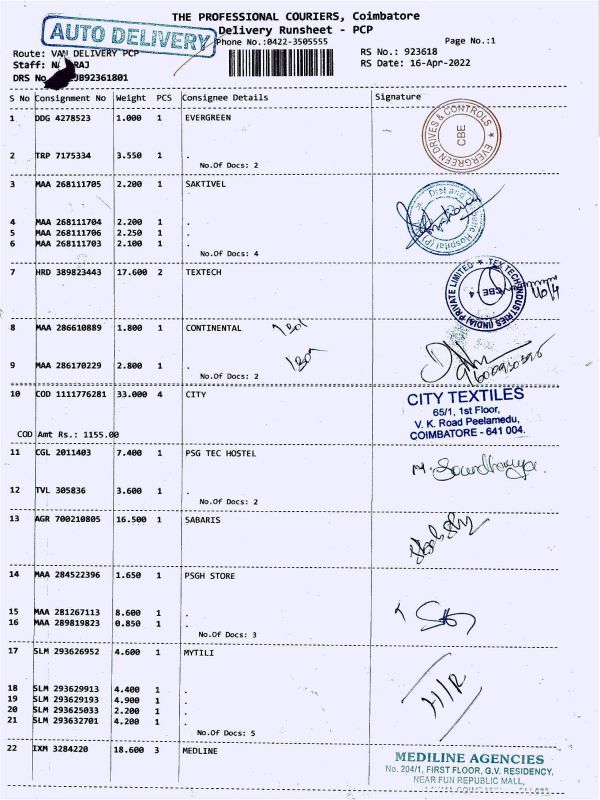 THE PROFESSIONAL COURIERS, Coimbatore
AUTO DELIVERY
Delivery Runsheet - PCP
Phone No.:0422-3505555
Page No.:1
Route: VAN DELIVERY PCP
RS No.: 923618
Staff:
RS Date: 16-Apr-2022
DRS No
92361801
S No Consignment No Weight PCS Consignee Details Signature
1 DDG 4278523 1.000 1 EVERGREEN
EVERGREEN DRIVES & CONTROLS
CBE
2 TRP 7175334 3.550 1 .
No.Of Docs: 2
3 MAA 268111705 2.200 1 SAKTIVEL
4 MAA 268111704 2.200 1 .
5 MAA 268111706 2.250 1 .
6 MAA 268111703 2.100 1 .
No.Of Docs: 4
Hospital (P)
7 HRD 389823443 17.600 2 TEXTECH
TEX TECH INDUSTRIES (INDIA) PRIVATE LIMITED
CBE - 4
8 MAA 286610889 1.800 1 CONTINENTAL
9 MAA 286170229 2.800 1 .
No.Of Docs: 2
10 COD 1111776281 33.000 4 CITY
COD Amt Rs.: 1155.00
CITY TEXTILES
65/1, 1st Floor,
V. K. Road Peelamedu,
COIMBATORE - 641 004.
11 CGL 2011403 7.400 1 PSG TEC HOSTEL
M. Soundharya
12 TVL 305836 3.600 1 .
No.Of Docs: 2
13 AGR 700210805 16.500 1 SABARIS
14 MAA 284522396 1.650 1 PSGH STORE
15 MAA 281267113 8.600 1 .
16 MAA 289819823 0.850 1 .
No.Of Docs: 3
17 SLM 293626952 4.600 1 MYTILI
H/R
18 SLM 293629913 4.400 1 .
19 SLM 293629193 4.900 1 .
20 SLM 293625033 2.200 1 .
21 SLM 293632701 4.200 1 .
No.Of Docs: 5
22 IXM 3284220 18.600 3 MEDLINE
MEDILINE AGENCIES
No. 204/1, FIRST FLOOR, G.V. RESIDENCY,
NEAR FUN REPUBLIC MALL,